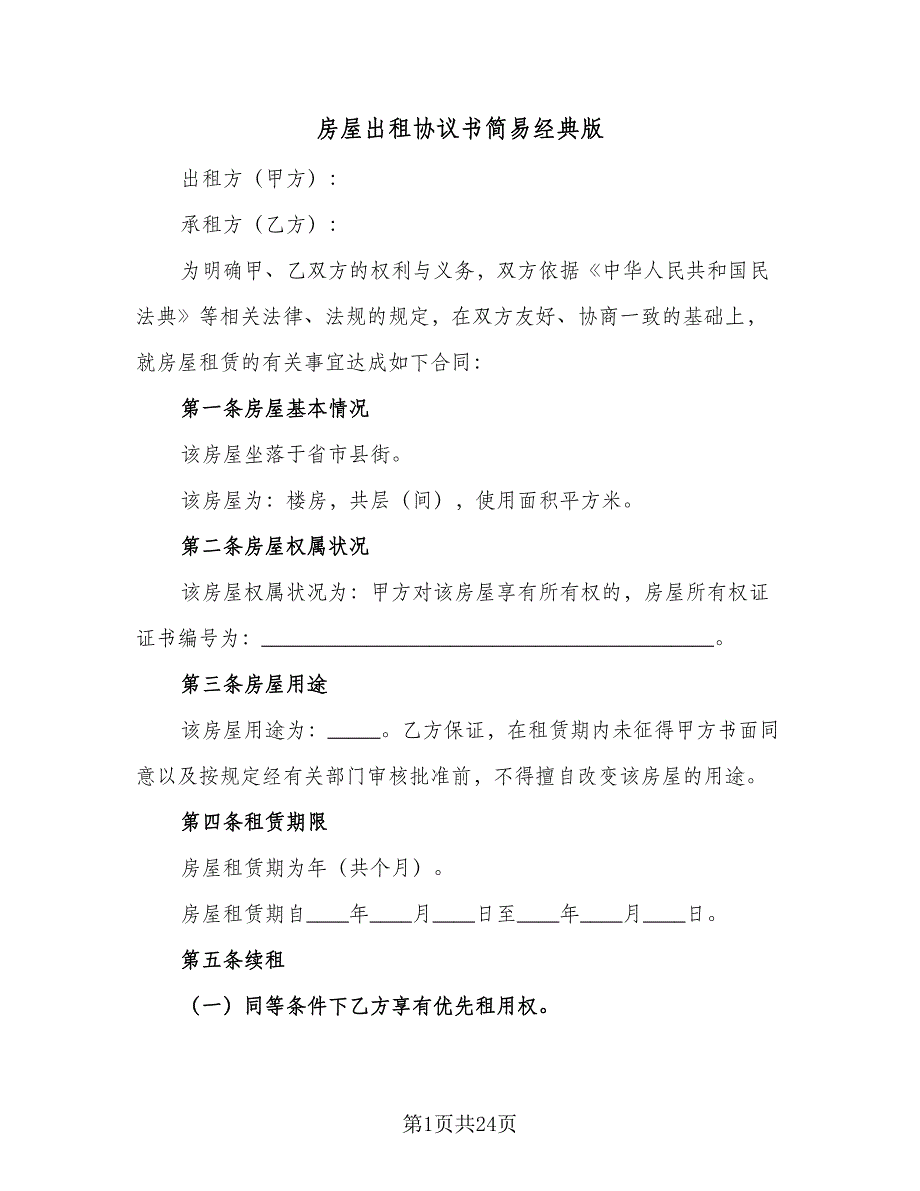 房屋出租协议书简易经典版
出租方（甲方）：
承租方（乙方）：
为明确甲、乙双方的权利与义务，双方依据《中华人民共和国民
法典》等相关法律、法规的规定，在双方友好、协商一致的基础上，
就房屋租赁的有关事宜达成如下合同：
第一条房屋基本情况
该房屋坐落于省市县街。
该房屋为：楼房，共层（间），使用面积平方米。
第二条房屋权属状况
该房屋权属状况为：甲方对该房屋享有所有权的，房屋所有权证
证书编号为：___________________________________。
第三条房屋用途
该房屋用途为：____。乙方保证，在租赁期内未征得甲方书面同
意以及按规定经有关部门审核批准前，不得擅自改变该房屋的用途。
第四条租赁期限
房屋租赁期为年（共个月）。
房屋租赁期自___年___月___日至___年___月___日。
第五条续租
（一）同等条件下乙方享有优先租用权。
第1页共24页